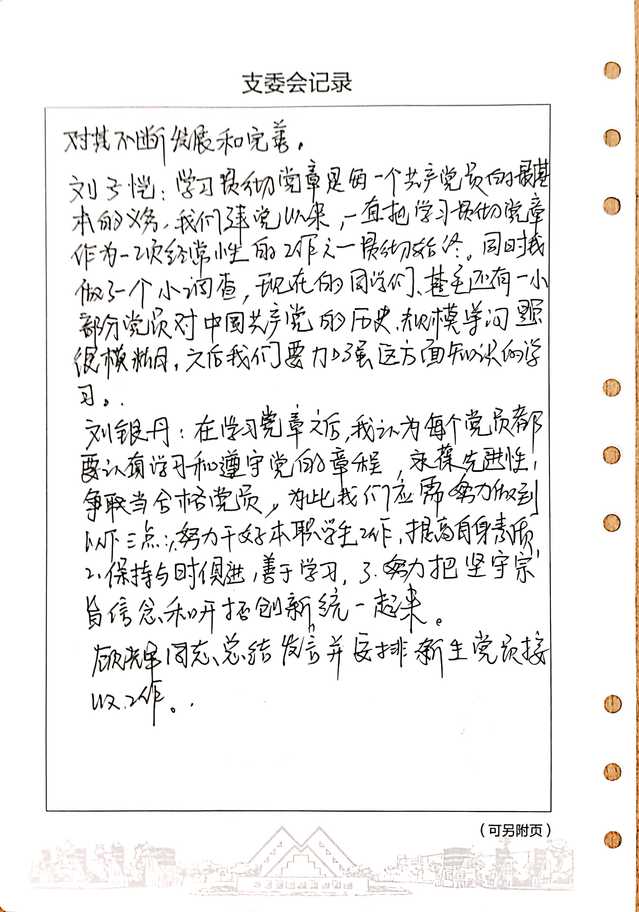 支委会记录
对其不断发展和完善。
刘子恺：学习贯彻党章是每一个共产党员的最基
本的义务，我们建党以来，一直把学习贯彻党章
作为一项经常性的工作之一贯彻始终。同时我
做了一个小调查，现在的同学们、甚至还有一小
部分党员对中国共产党的历史、规模等问题
很模糊，之后我们要加强这方面知识的学
习。
刘银丹：在学习党章之后，我认为每个党员都
要认真学习和遵守党的章程，永葆先进性，
争取当合格党员，为此我们应需努力做到
以下三点：1.努力干好本职学生工作，提高自身素质，
2.保持与时俱进，善于学习，3.努力把坚守宗
旨信念和开拓创新统一起来。
同志总结发言并安排新生党员接
收工作。
（可另附页）